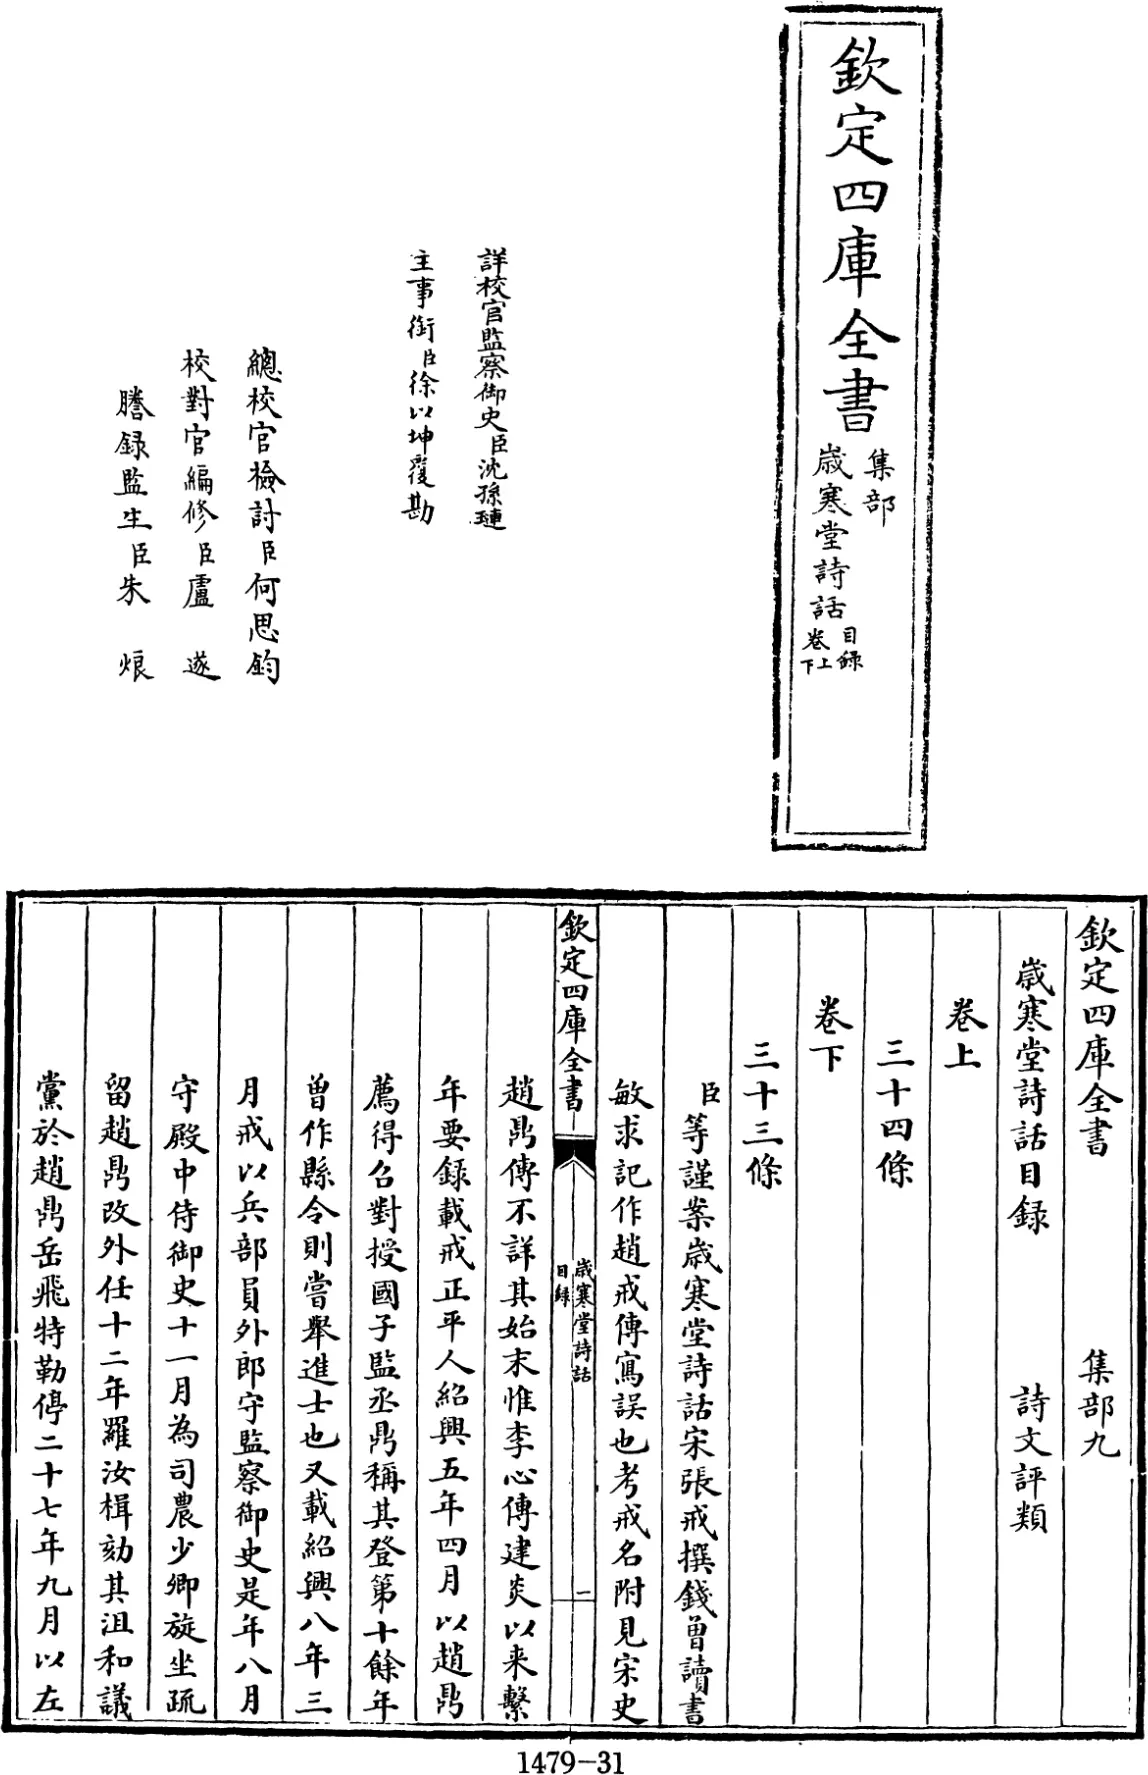 欽定四庫全書
集部
歲寒堂詩話
目錄
卷上
下
詳校官監察御史臣沈孫璉
主事銜臣徐以坤覆勘
總校官檢討臣何思鈞
校對官編修臣盧遂
謄錄監生臣朱烺
欽定四庫全書 集部九
歲寒堂詩話目錄 詩文評類
卷上
三十四條
卷下
三十三條
臣等謹案歲寒堂詩話宋張戒撰錢曾讀書
敏求記作趙戒傳寫誤也考戒名附見宋史
欽定四庫全書
歲寒堂詩話
目錄
二
趙鼎傳不詳其始末惟李心傳建炎以来繫
年要錄載戒正平人紹興五年四月以趙鼎
薦得召對授國子監丞鼎稱其登第十餘年
曾作縣令則嘗舉進士也又載紹興八年三
月戒以兵部員外郎守監察御史是年八月
守殿中侍御史十一月為司農少卿旋坐疏
留趙鼎改外任十二年羅汝楫劾其沮和議
黨於趙鼎岳飛特勒停二十七年九月以左
1479-31